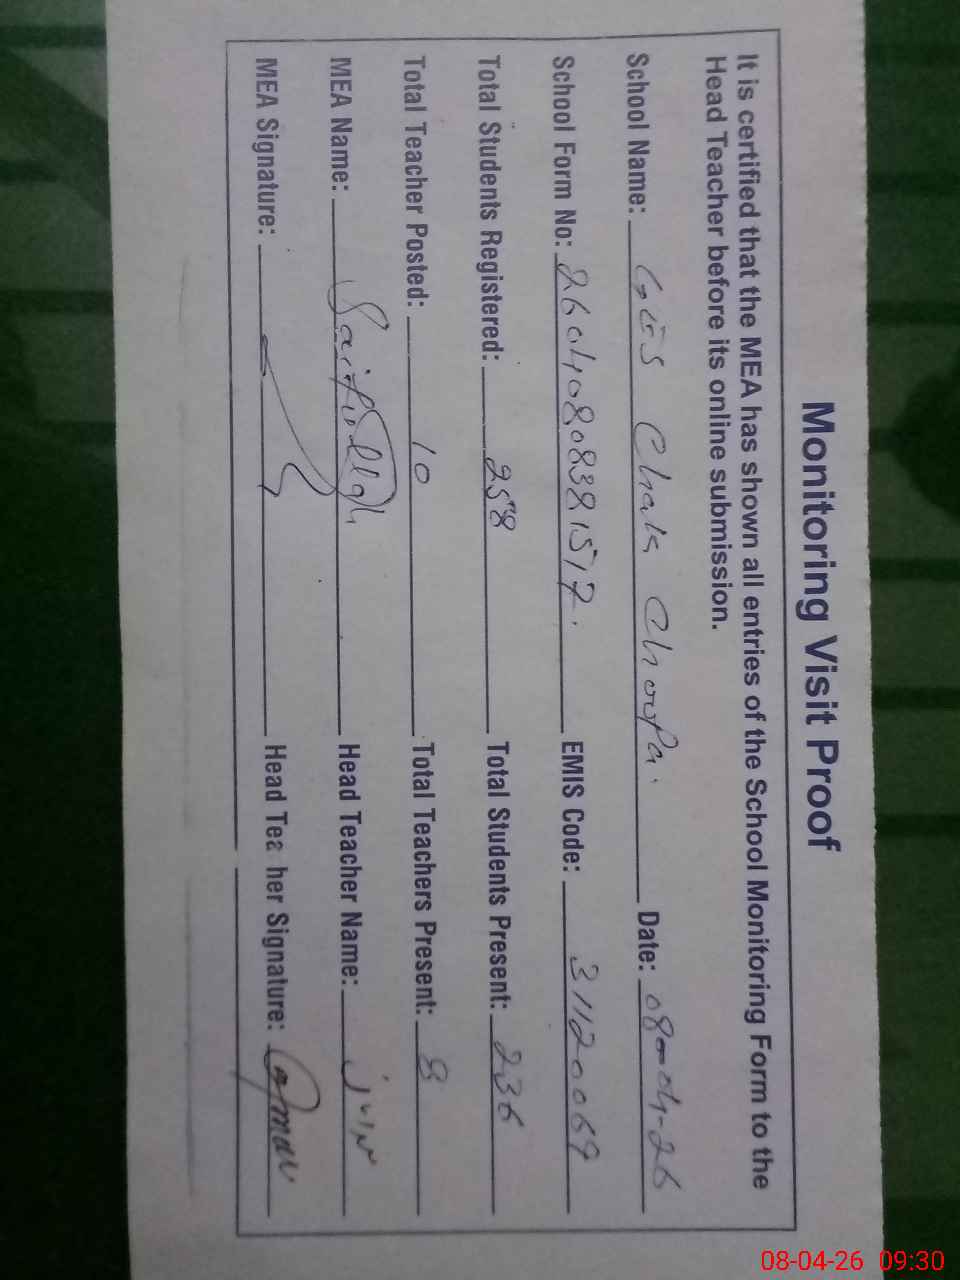 Monitoring Visit Proof
It is certified that the MEA has shown all entries of the School Monitoring Form to the
Head Teacher before its online submission.
School Name: GES Chak Choopa. Date: 08-04-26
School Form No: 2604080838157. EMIS Code: 31120069
Total Students Registered: 258 Total Students Present: 236
Total Teacher Posted: 10 Total Teachers Present: 8
MEA Name: Saifullah Head Teacher Name:
MEA Signature: Head Teacher Signature:
08-04-26 09:30